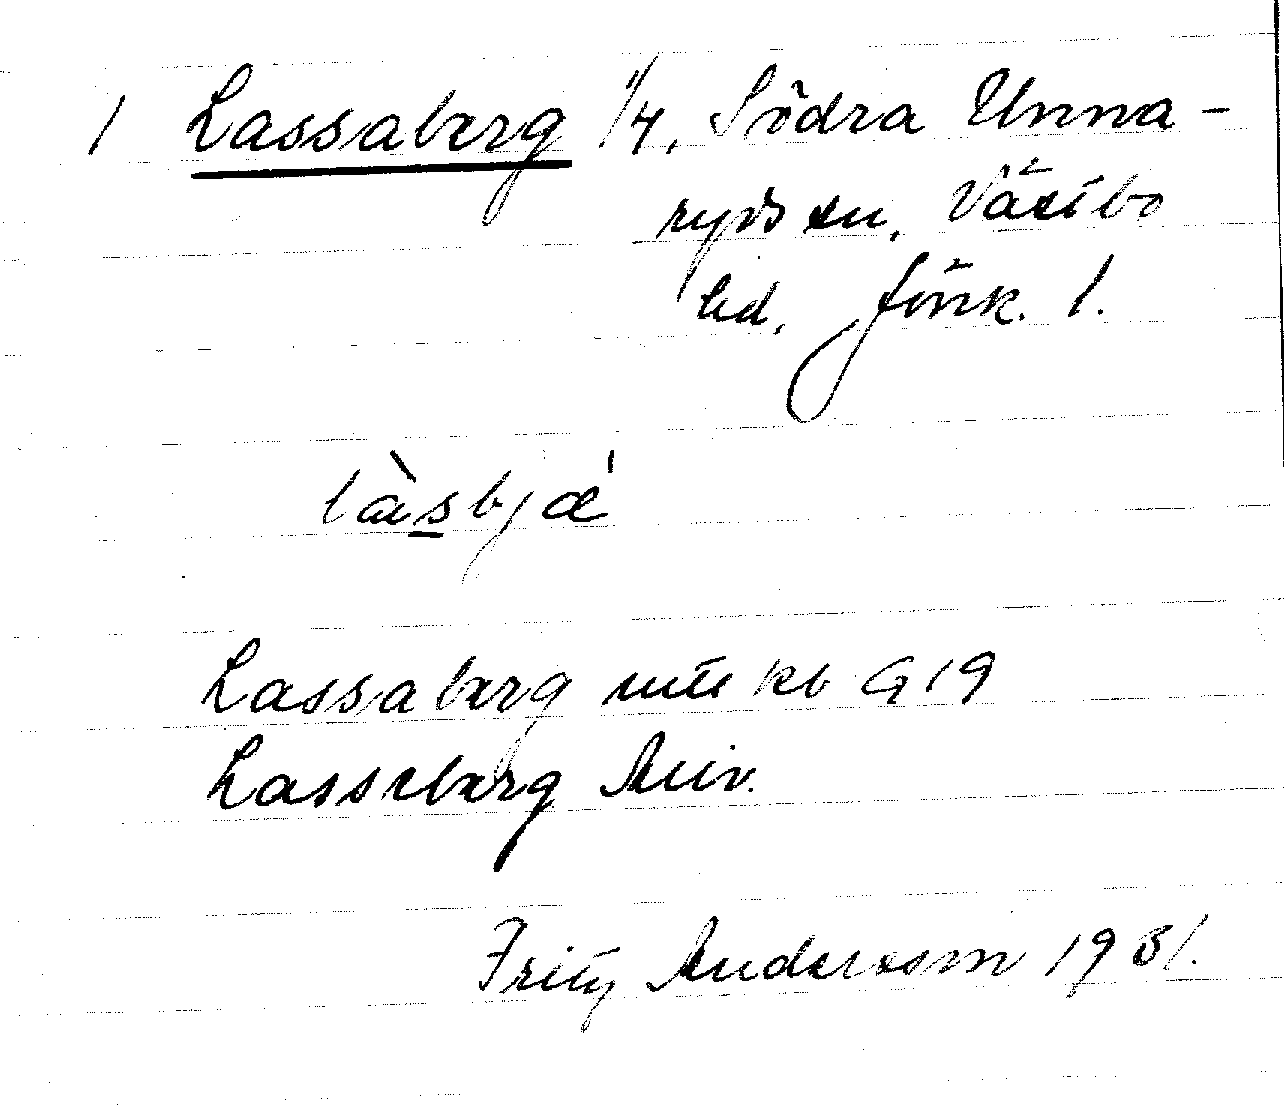 1 Lassaberg 1/4, Södra Unna-
ryds sn, Västbo
hd, Jönk. l.
làsbjæ
Lassaberg mtl kb G 19
Lasseberg Auv.
Fritz Andersson 1931.